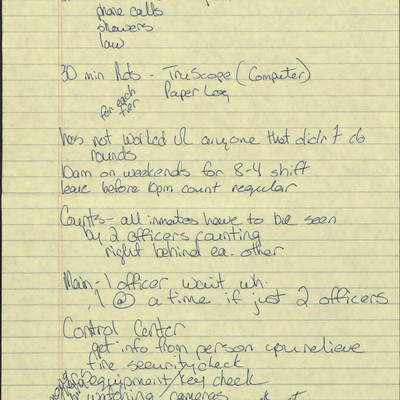 phone calls
showers
law
30 min Rds - TruScope (Computer)
for each tier
Paper Log
has not worked w/ anyone that didn't do
rounds
10am on weekends for 8-4 shift
leave before 10pm count regular
Counts - all inmates have to be seen
by 2 officers counting
right behind ea. other
Main - 1 officer wait wh.
1 @ a time if just 2 officers
Control Center
get info from person you relieve
fire security check
equipment/key check
watching cameras